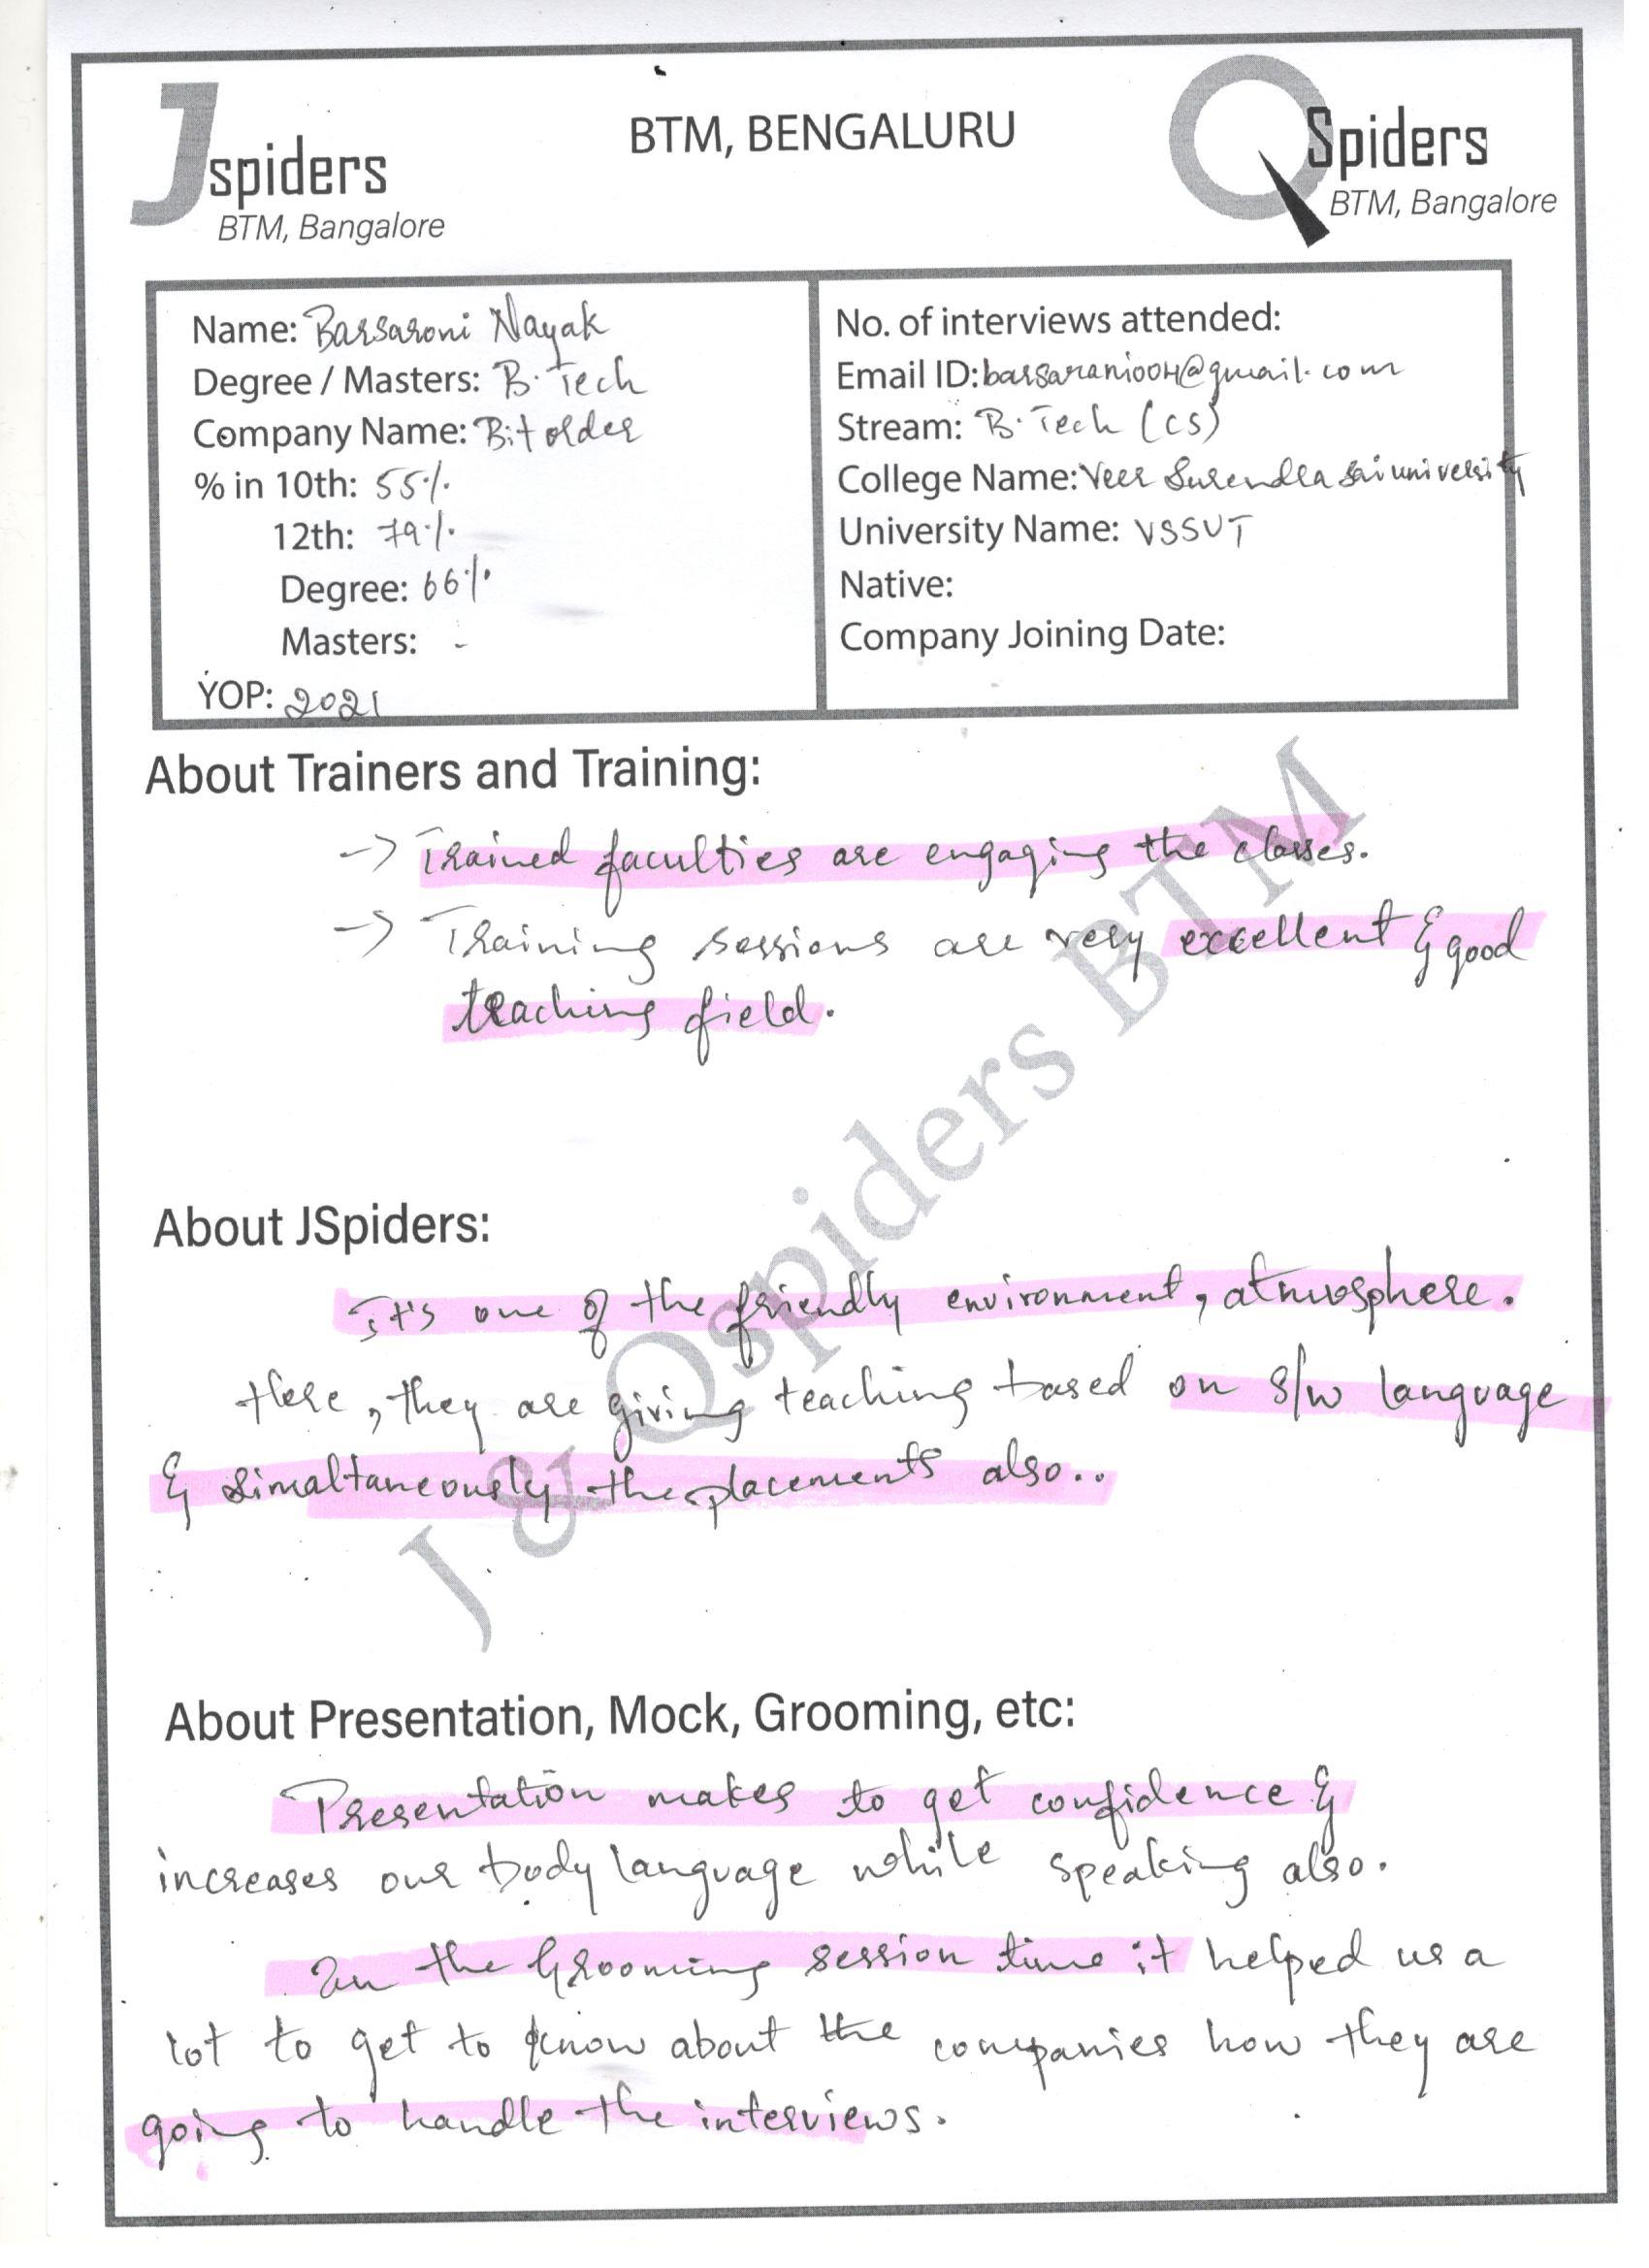 Jspiders
BTM, Bangalore
BTM, BENGALURU
QSpiders
BTM, Bangalore
Name: Barsaroni Nayak
Degree / Masters: B.Tech
Company Name: Bitolder
% in 10th: 55%
12th: 79%
Degree: 66%
Masters: -
YOP: 2021
No. of interviews attended:
Email ID: barsarani004@gmail.com
Stream: B.Tech (CS)
College Name: Veer Surendra Sai university
University Name: VSSUT
Native:
Company Joining Date:
About Trainers and Training:
-> Trained faculties are engaging the classes.
-> Training sessions are very excellent & good
teaching field.
About JSpiders:
It's one of the friendly environment, atmosphere.
Here, they are giving teaching based on S/W language
& simaltaneously the placements also..
About Presentation, Mock, Grooming, etc:
Presentation makes to get confidence &
increases our body language while speaking also.
In the Grooming session time it helped us a
lot to get to know about the companies how they are
going to handle the interviews.
J & Qspiders BTM